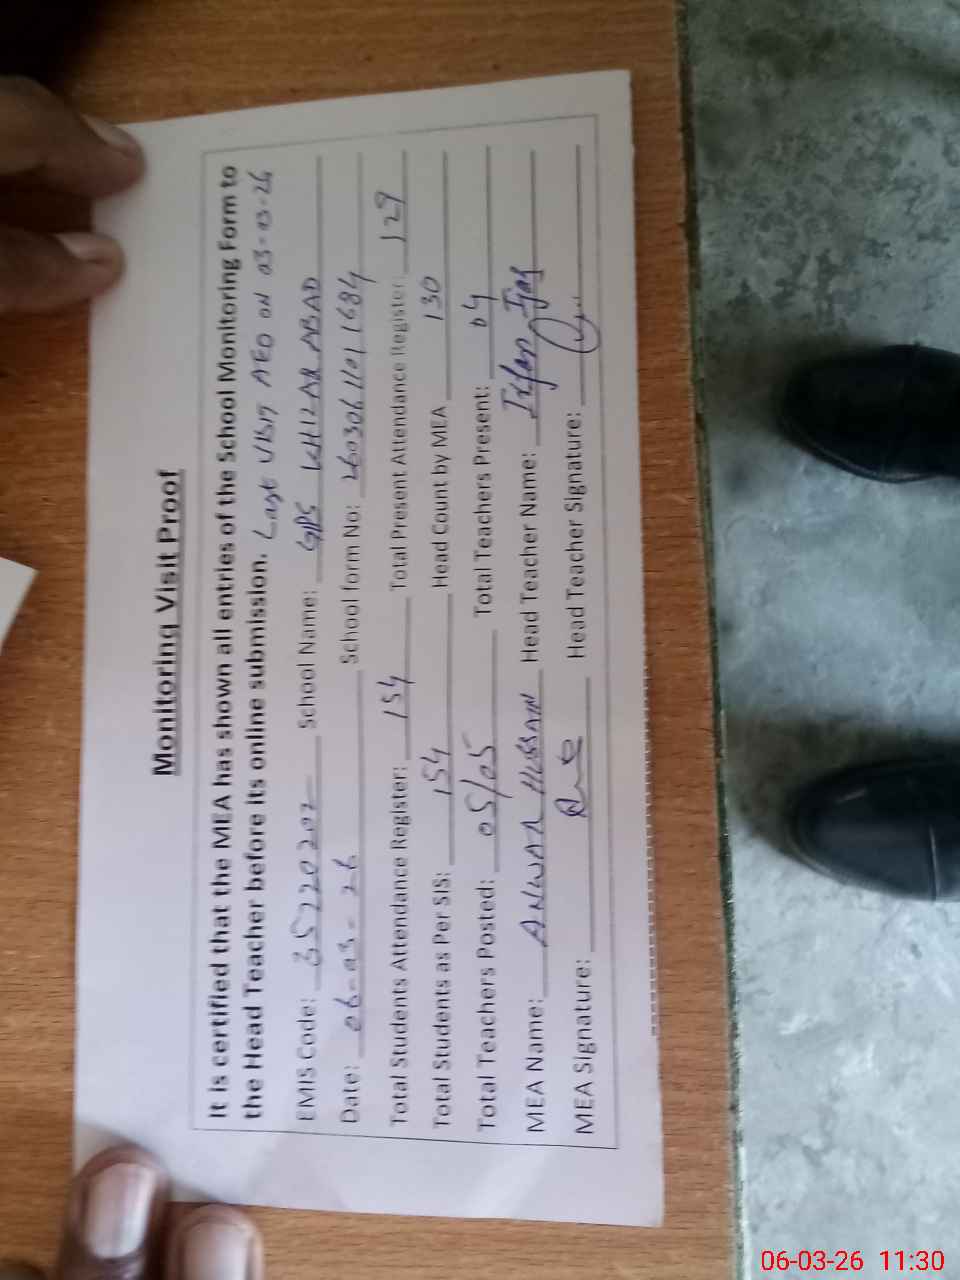 Monitoring Visit Proof
It is certified that the MEA has shown all entries of the School Monitoring Form to
the Head Teacher before its online submission. Last Visit AEO ON 03-03-26
EMIS Code: 35220207 School Name: GPS KHIZAR ABAD
Date: 06-03-26 School form No: 26030611011684
Total Students Attendance Register: 154 Total Present Attendance Register: 129
Total Students as Per SIS: 154 Head Count by MEA 130
Total Teachers Posted: 05/05 Total Teachers Present: 04
MEA Name: ANWAR HUSSAIN Head Teacher Name: Irfan Ijaz
MEA Signature: Head Teacher Signature:
06-03-26 11:30